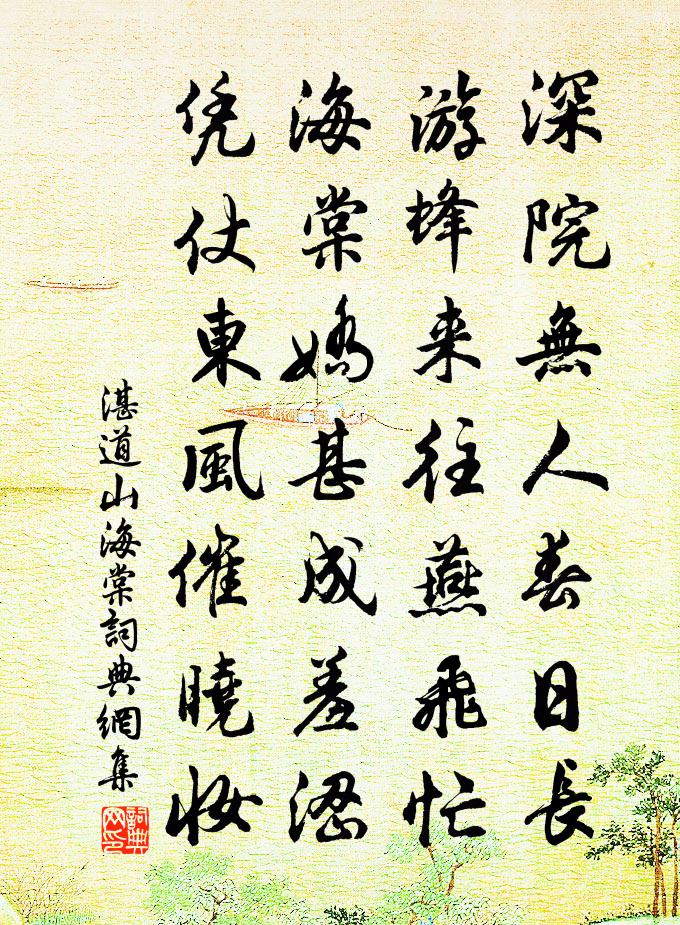 深院無人春日長
游蜂来往燕飛忙
海棠嬌甚成羞澀
凭仗東風催曉妝
湛道山海棠詞典網集
詞典網印